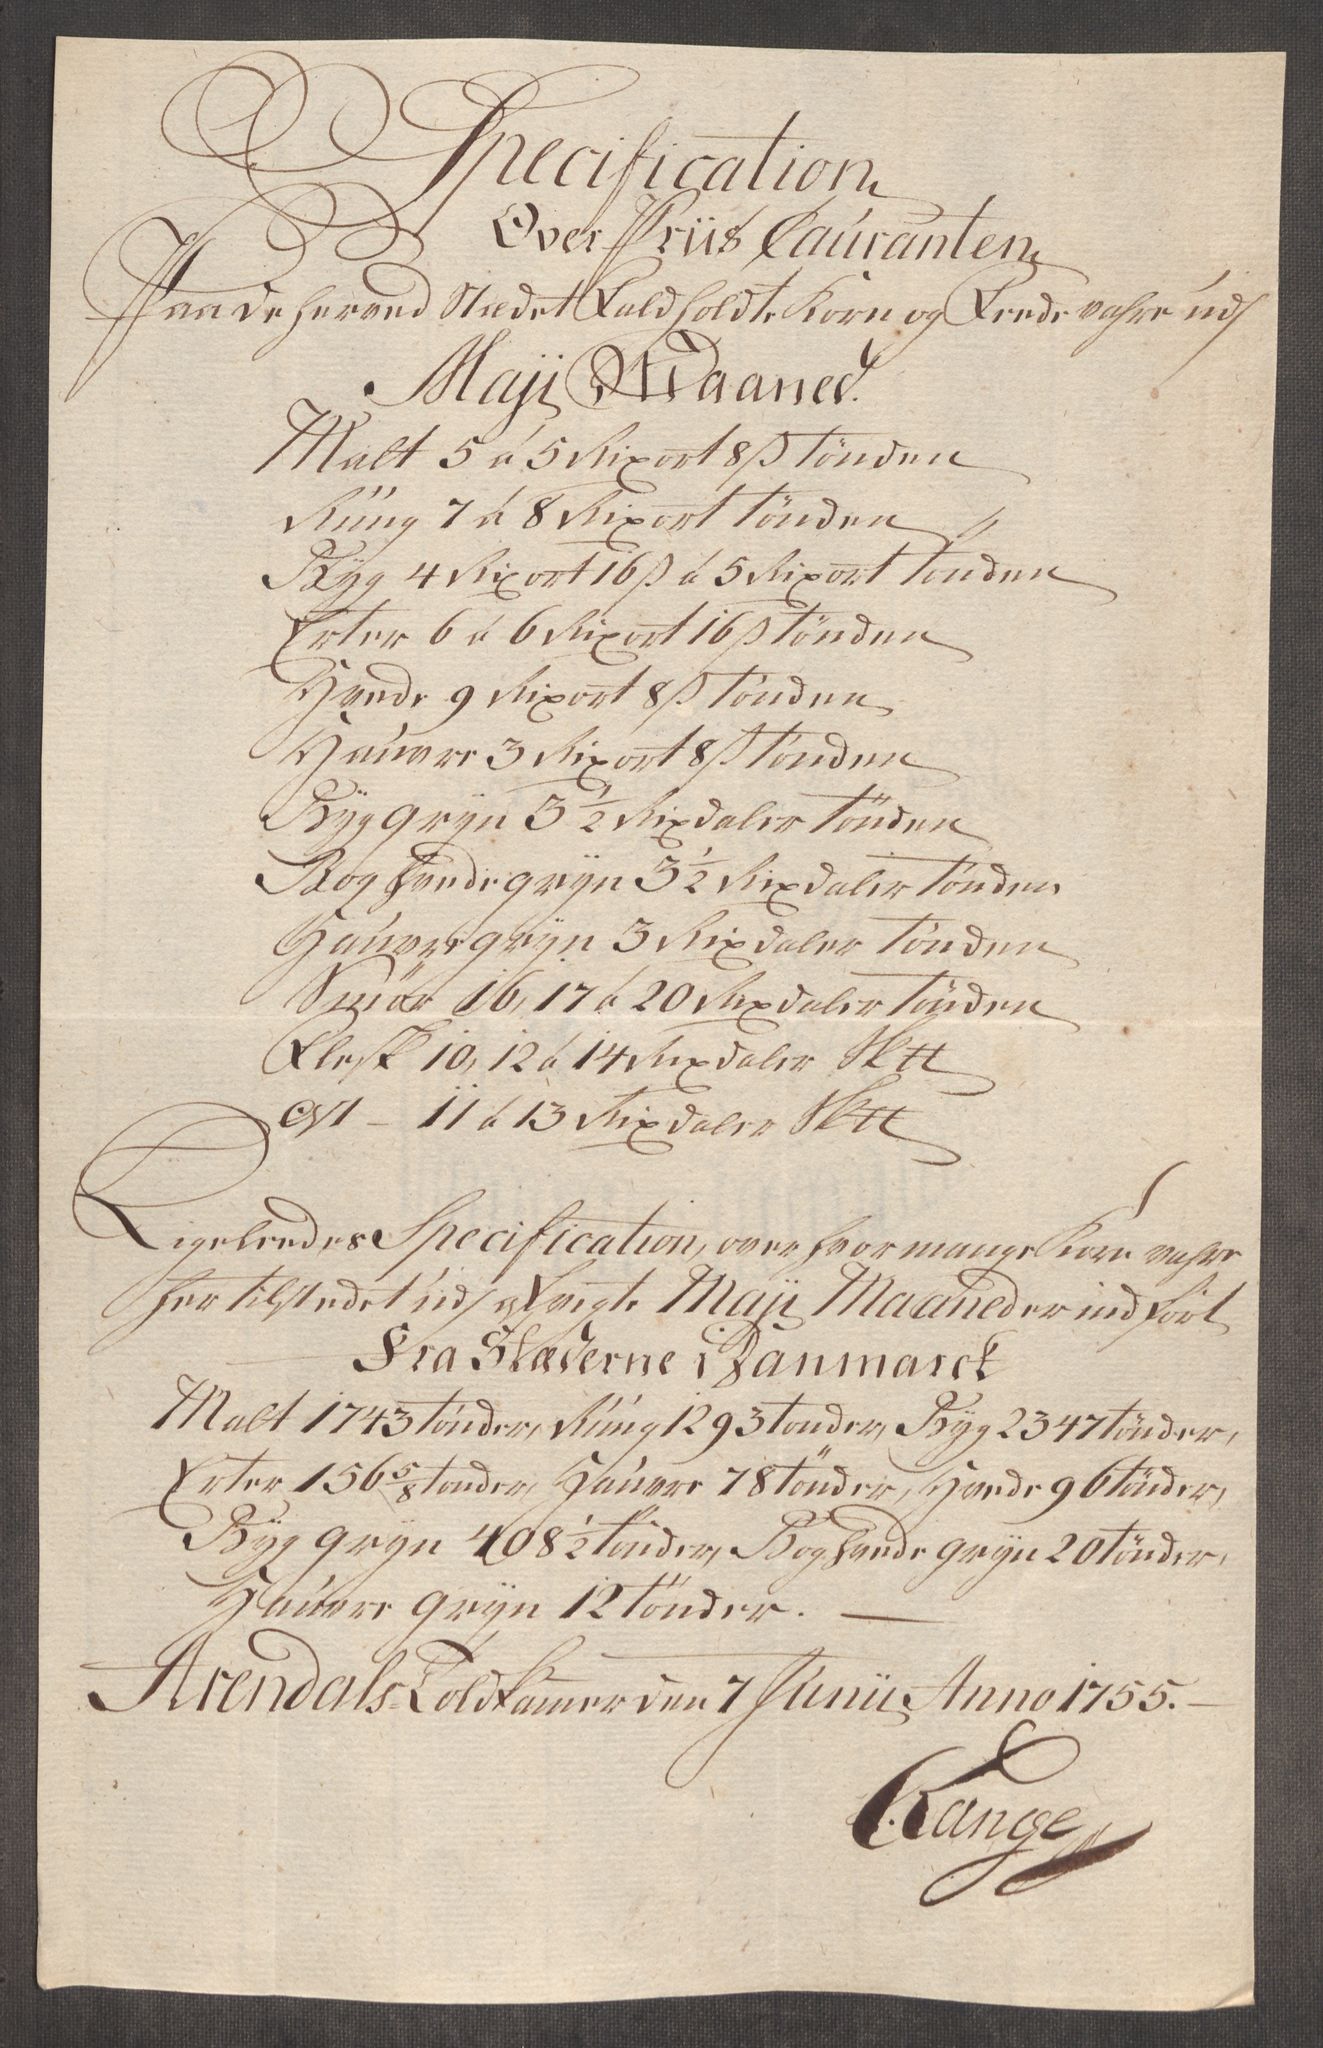 Specification
Over Priis Cauranten
Paa de herved Stædet Faldholdte Korn og Feede vahre udj
Maji Maaned.
Malt 5 à 5 Rixort 8 ß tönden
Rüug 7 à 8 Rixort tönden
Byg 4 Rixort 16 ß à 5 Rixort tönden
Erter 6 à 6 Rixort 16 ß tönden
Hvede 9 Rixort 8 ß tönden
Hauvre 3 Rixort 8 ß tönden
Byggryn 3 1/2 Rixdaler tönden
Boghvedegryn 3 1/2 Rixdaler tönden
Hauvregryn 3 Rixdaler tönden
Smör 16, 17 à 20 Rixdaler tönden
Flesk 10, 12 à 14 Rixdaler Sktt
11 à 13 Rixdaler Sktt
Ligeleedes Specification, over hvor mange Korn vahre
her til stedet udj Maji Maaned er indfört
Fra Stæderne i Danmarck
Malt 1743 tönder, Rüug 1293 tonder, Byg 2347 tönder,
Erter 156 5/8 tonder, Hauvre 78 tönder, Hvede 96 tönder,
Byg gryn 408 1/2 tönder, Boghvede gryn 20 tönder,
Hauvre gryn 12 tönder.
Arendals Toldkamer den 7 Junii Anno 1755.